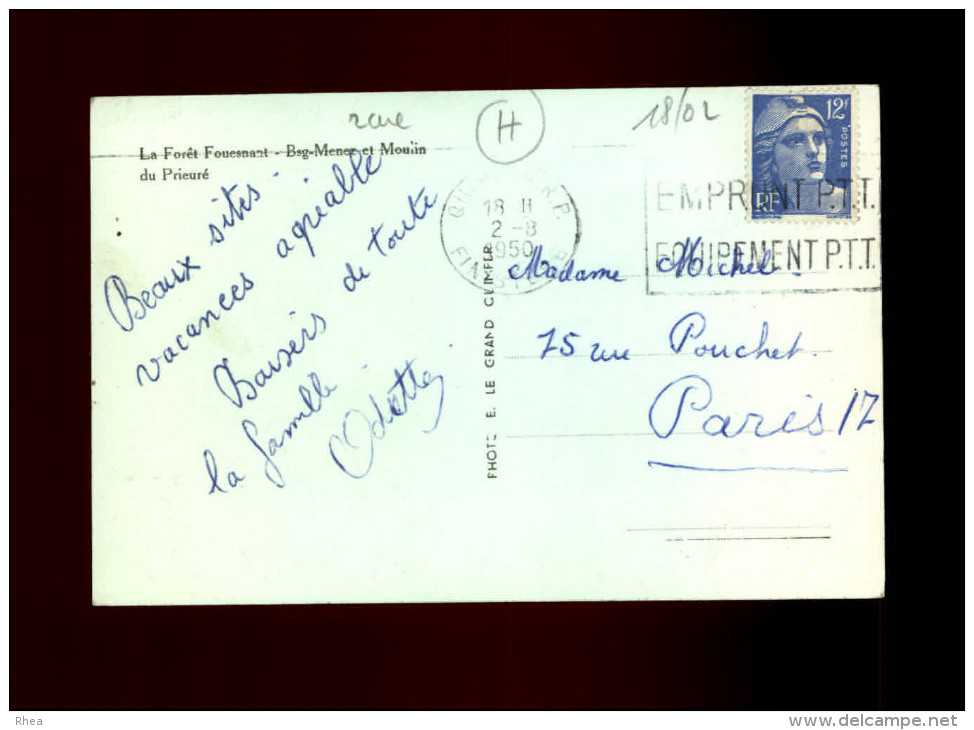 rare
H
18/02
La Forêt Fouesnant - Bsg-Menez et Moulin
du Prieuré
12F
POSTES
RF
18 H
2 - 8
1950
EMPRUNT P.T.T.
EQUIPEMENT P.T.T.
Beaux sites
vacances agréable
Baisers de toute
la famille
Odette
PHOTO E. LE GRAND QUIMPER
Madame Michel
75 rue Pouchet.
Paris 17
Rhea
www.delcampe.net